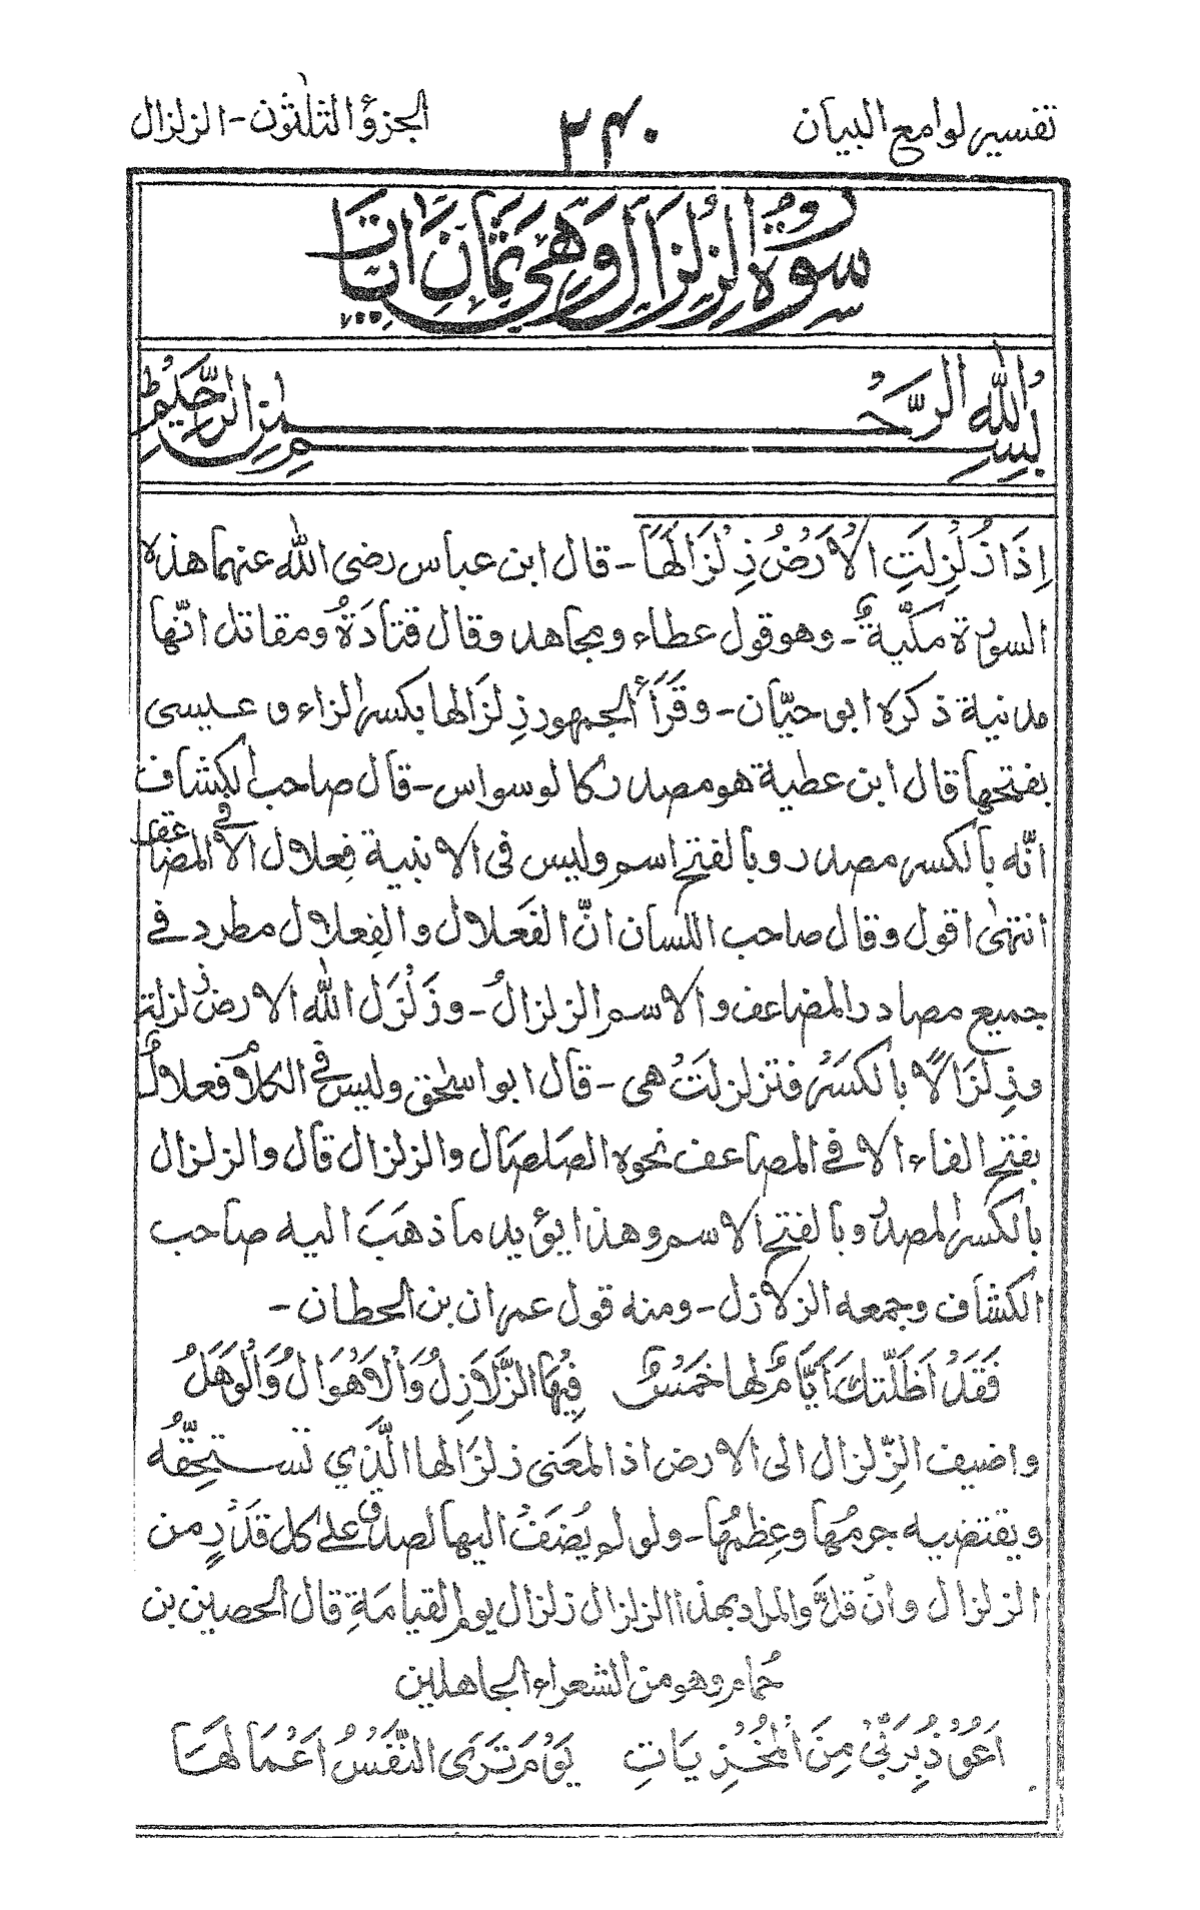 تفسير لوامع البيان
٢٤٠
الجزؤ الثلثون - الزلزال
سورة الزلزال وهي ثمان ايات
بسم الله الرحمن الرحيم
اِذَا زُلْزِلَتِ الْاَرْضُ زِلْزَالَهَا - قال ابن عباس رضى الله عنهما هذه
السورة مكّية - وهو قول عطاء ومجاهد وقال قتادَةُ ومقاتل انّها
مدنية ذكره ابو حيّان - وقَرَأ الجمهور زِلزَالها بكسر الزاء و عيسى
بفتحها قال ابن عطية هو مصدر كالوسواس - قال صاحب الكشاف
انّه بالكسر مصدر وبالفتح اسم وليس فى الابنية فِعلال الا فى المضاعف
انتهى اقول وقال صاحب اللسان انَّ الفَعلال والفِعلال مطرد في
جميع مصادر المضاعف والاسم الزلزالُ - وزَلْزَل الله الارض زلزلة
وزِلزَالًا بالكَسَر فتزلزلتْ هى - قال ابو اسحٰق وليس في الكلام فعلال
بفتح الفاء الا في المضاعف نحوه الصَلصَال والزلزال قال والزلزال
بالكسر المصدر وبالفتح الاسم وهذا يؤيد ما ذهَبَ اليه صاحب
الكشاف وجمعه الزلازل - ومنه قول عمران بن الحطان -
فَقَدْ اَظَلَّتكَ اَيَّامٌ لها خَمسٌ فِيْهَا الزَّلَازِلُ وَالْاَهْوَالُ وَالْوَهَلُ
واضيف الزِّلزال الى الارض اذ المعَنى زلزَالها الَّذي تستحِقّهُ
ويقتضيه جرمُها وعِظمُها - ولو لم يُضَفْ اليها لصدق على كل قَدْرٍ من
الزلزال وانْ قلّ والمراد بهذا الزلزال زلزال يوم القيامَةِ قال الحصين بن
حُمام وهو من الشعراء الجاهلين
اَعُوْذُ بِرَبِّيْ مِنَ الْمُخْزِيَاتِ يَوْمَ تَرَى النَّفْسُ اَعْمَالَهَا